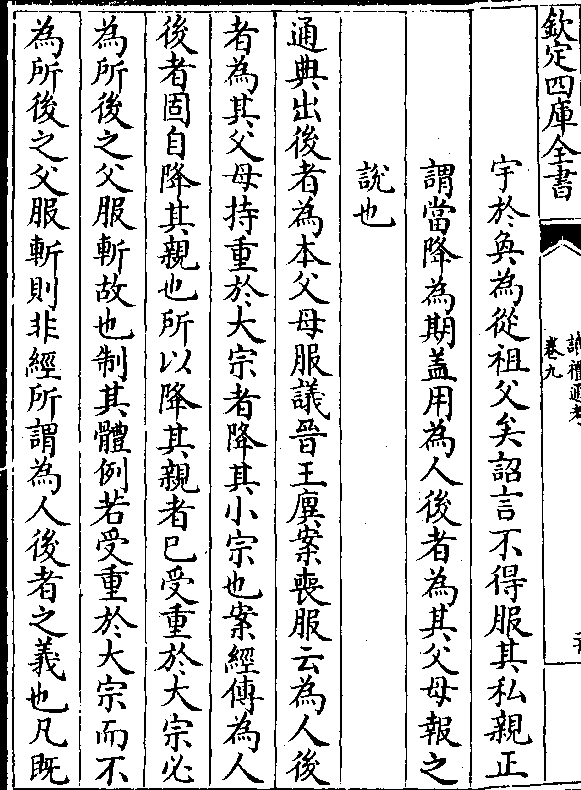 欽定四庫全書
讀禮通考
卷九
宇於奐為從祖父矣詔言不得服其私親正
謂當降為期蓋用為人後者為其父母報之
説也
通典出後者為本父母服議晉王廙案喪服云為人後
者為其父母持重於大宗者降其小宗也案經傳為人
後者固自降其親也所以降其親者已受重於大宗必
為所後之父服斬故也制其體例若受重於大宗而不
為所後之父服斬則非經所謂為人後者之義也凡既